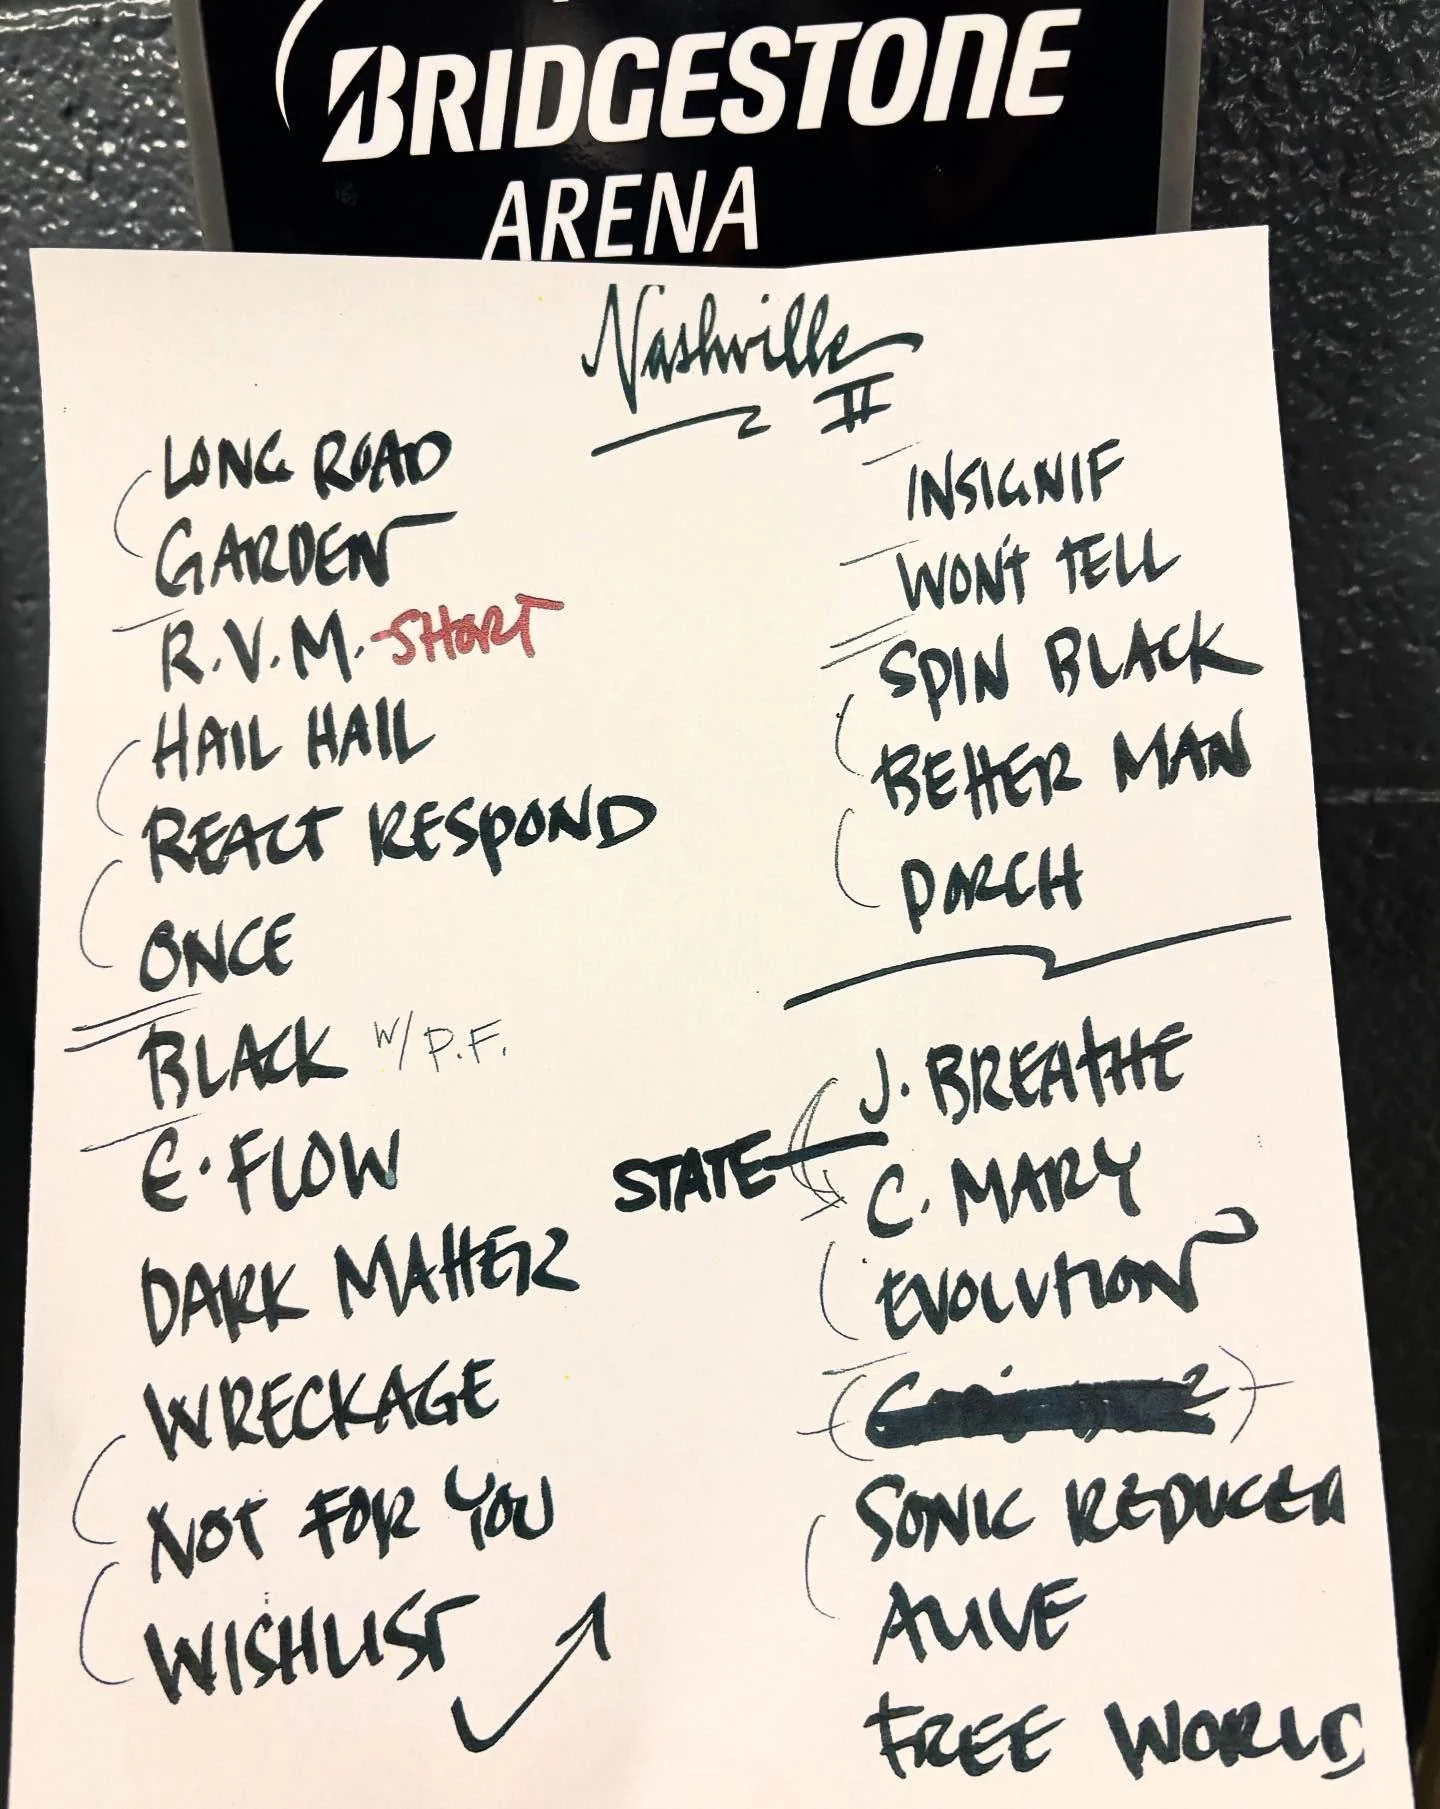 BRIDGESTONE
ARENA
Nashville
II
LONG ROAD
GARDEN
R.V.M. SHORT
HAIL HAIL
REACT RESPOND
ONCE
BLACK W/ P.F.
E. FLOW
DARK MATTER
WRECKAGE
NOT FOR YOU
WISHLIST
INSIGNIF
WON'T TELL
SPIN BLACK
BETTER MAN
PORCH
J. BREATHE
STATE
C. MARY
EVOLUTION
SONIC REDUCER
ALIVE
FREE WORLD